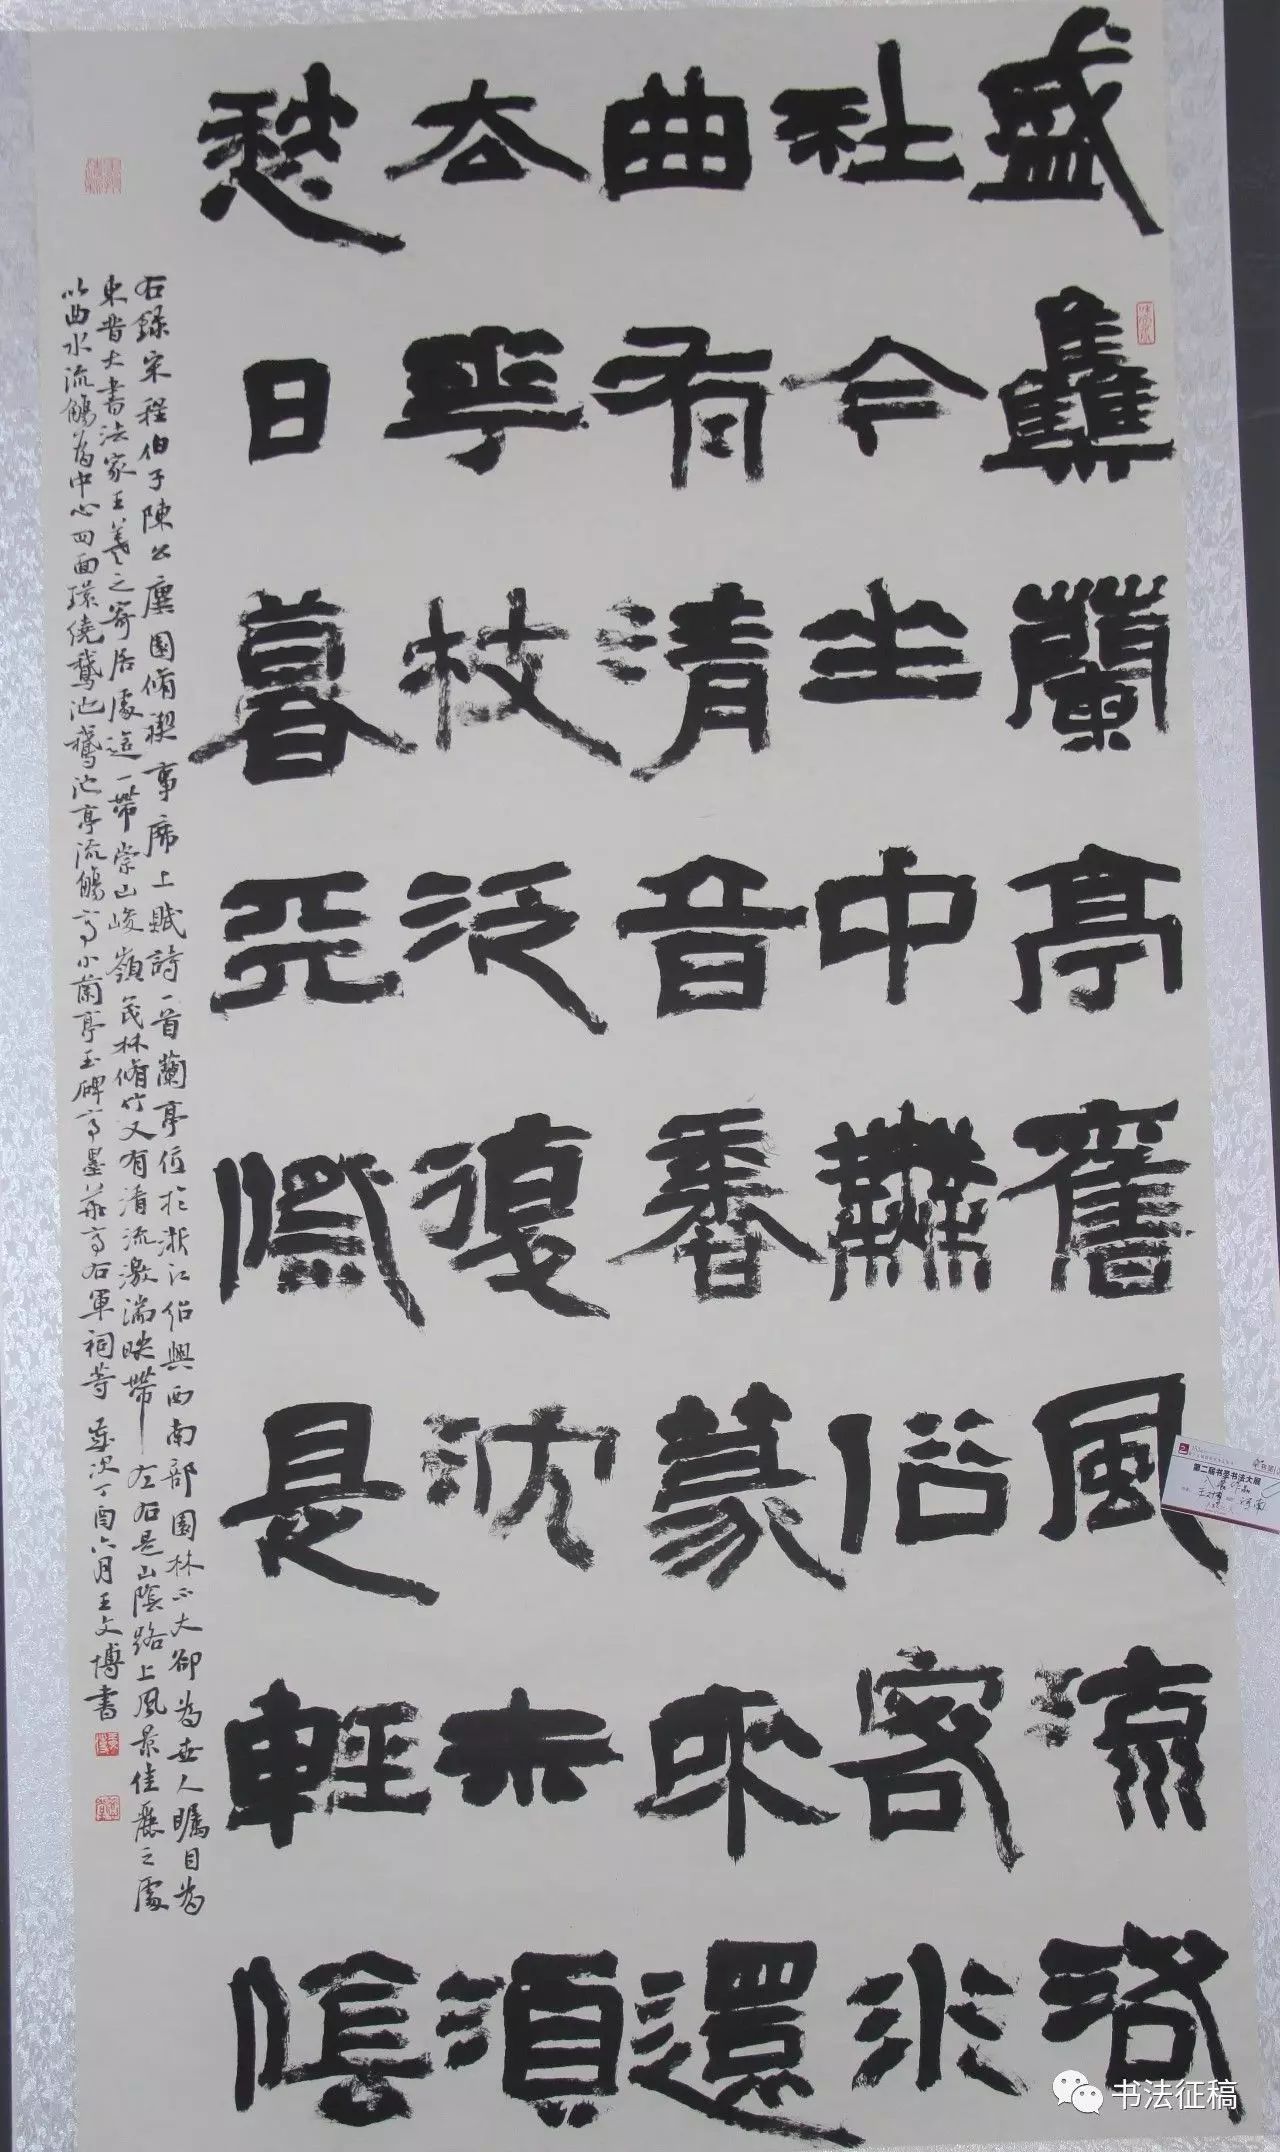 盛雧蘭亭舊風流洛
社今坐中無俗客水
曲有清音香篆來還
去花枝泛復沈未須
愁日暮天際是輕陰
右錄宋程伯子陳公廙園脩禊事席上賦詩一首蘭亭位於浙江紹興西南部園林不大卻為世人矚目為
東晉大書法家王羲之寄居處這一帶崇山峻嶺茂林脩竹又有清流激湍映帶左右是山陰路上風景佳麗之處
以曲水流觴為中心四面環繞鵝池鵝池亭流觴亭小蘭亭玉碑亭墨華亭右軍祠等 歲次丁酉六月王文博書
第二届书圣书法大展
入展作品
河南
书法征稿